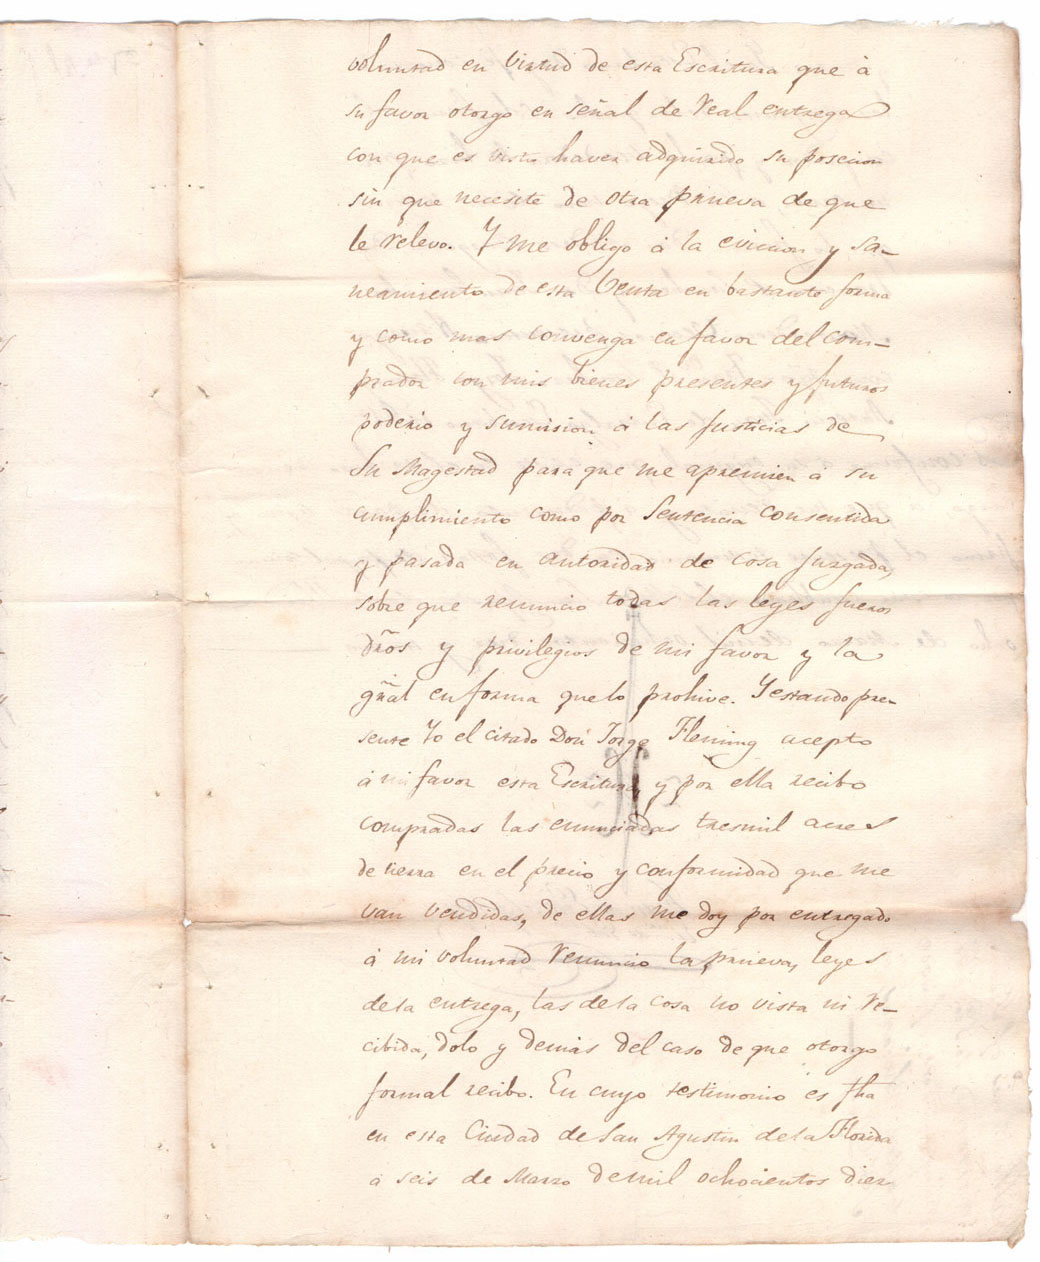 voluntad en virtud de esta Escritura que à
su favor otorgo en señal de real entrega
con que es visto haver adquirido su posecion
sin que necesite de otra prueva de que
le relevo. Y me obligo à la eviccion y sa-
neamiento de esta Venta en bastante forma
y como mas convenga en favor del com-
prador con mis bienes presentes y futuros
poderio y sumision à las Justicias de
Su Magestad para que me apremien à su
cumplimiento como por Sentencia consentida
y pasada en autoridad de cosa Juzgada,
sobre que renuncio todas las leyes fueros
dr̃os y privilegios de mi favor y la
gr̃al en forma que lo prohive. Y estando pre-
sente Yo el citado Don Jorge Fleming acepto
à mi favor esta Escritura y por ella recibo
compradas las enunciadas tresmil acres
de tierra en el precio y conformidad que me
van vendidas, de ellas me doy por entregado
à mi voluntad renuncio la prueva, leyes
de la entrega, las de la cosa no vista ni re-
cibida, dolo y demàs del caso de que otorgo
formal recibo. En cuyo testimonio es fha
en esta Ciudad de San Agustin de la Florida
a seis de Marzo de mil ochocientos diez